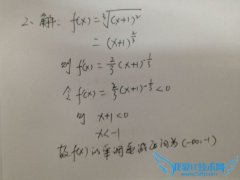 2、解: f(x)=∛(x+1)²
=(x+1)^(2/3)
则 f'(x)=2/3(x+1)^(-1/3)
令 f'(x)=2/3(x+1)^(-1/3)<0
则 x+1<0
x<-1
故f(x)的单调递减区间为(-∞,-1)